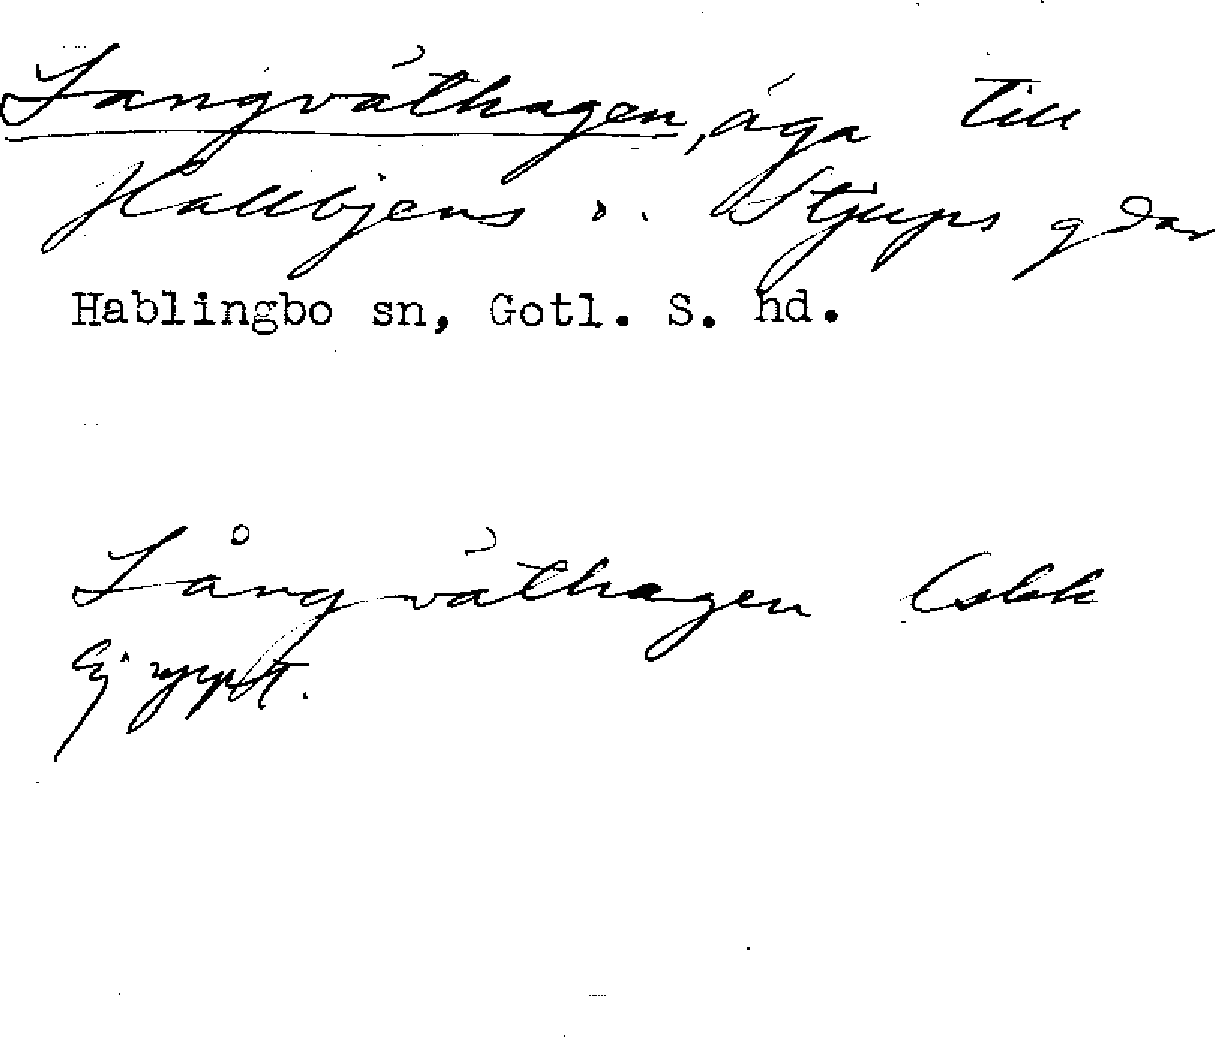 Långvåthagen, äga till
Hallbjens o. Stjups gdar
Hablingbo sn, Gotl. S. hd.
Långvåthagen (sbk
Ej uppt.